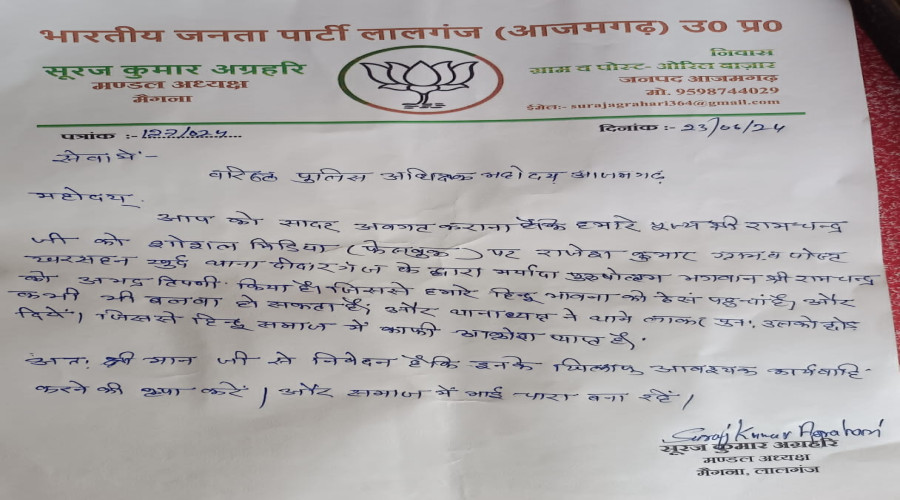 भारतीय जनता पार्टी लालगंज (आजमगढ़) उ0 प्र0
सूरज कुमार अग्रहरि
मण्डल अध्यक्ष
मैगना
निवास
ग्राम व पोस्ट- गौरित बाज़ार
जनपद आजमगढ़
मो. 9598744029
ईमेल:- surajagrahari364@gmail.com
पत्रांक :- 122/024
दिनांक :- 23/06/24
सेवा में -
वरिष्ठ पुलिस अधिक्षक महोदय आजमगढ़
महोदय,
आप को सादर अवगत कराना है कि हमारे श्री रामचन्द्र
जी को शोशल मिडिया (फेसबुक) पर राजेश कुमार ग्राम व पोस्ट
खरसहन खुर्द थाना दीदारगंज के द्वारा मर्यादा पुरुषोत्तम भगवान श्री रामचन्द्र
को अभद्र टिपणी किया है। जिससे हमारे हिन्दू भावना को ठेस पहुचा है, और
कभी भी बलवा हो सकता है, और थानाध्यक्ष ने थाने लाकर पुनः उसको छोड़
दिये। जिससे हिन्दू समाज में काफी आक्रोश व्याप्त है।
अतः श्री मान जी से निवेदन है कि इनके खिलाफ आवश्यक कार्यवाहि
करने की कृपा करें। और समाज में भाई चारा बना रहें।
Suraj Kumar Agrahari
सूरज कुमार अग्रहरि
मण्डल अध्यक्ष
मैगना, लालगंज